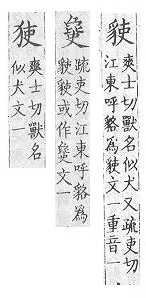 爽士切獸名似犬又疏吏切
江東呼貉為文一重音一
疏吏切江東呼貉為
或作文一
爽士切獸名
似犬文一